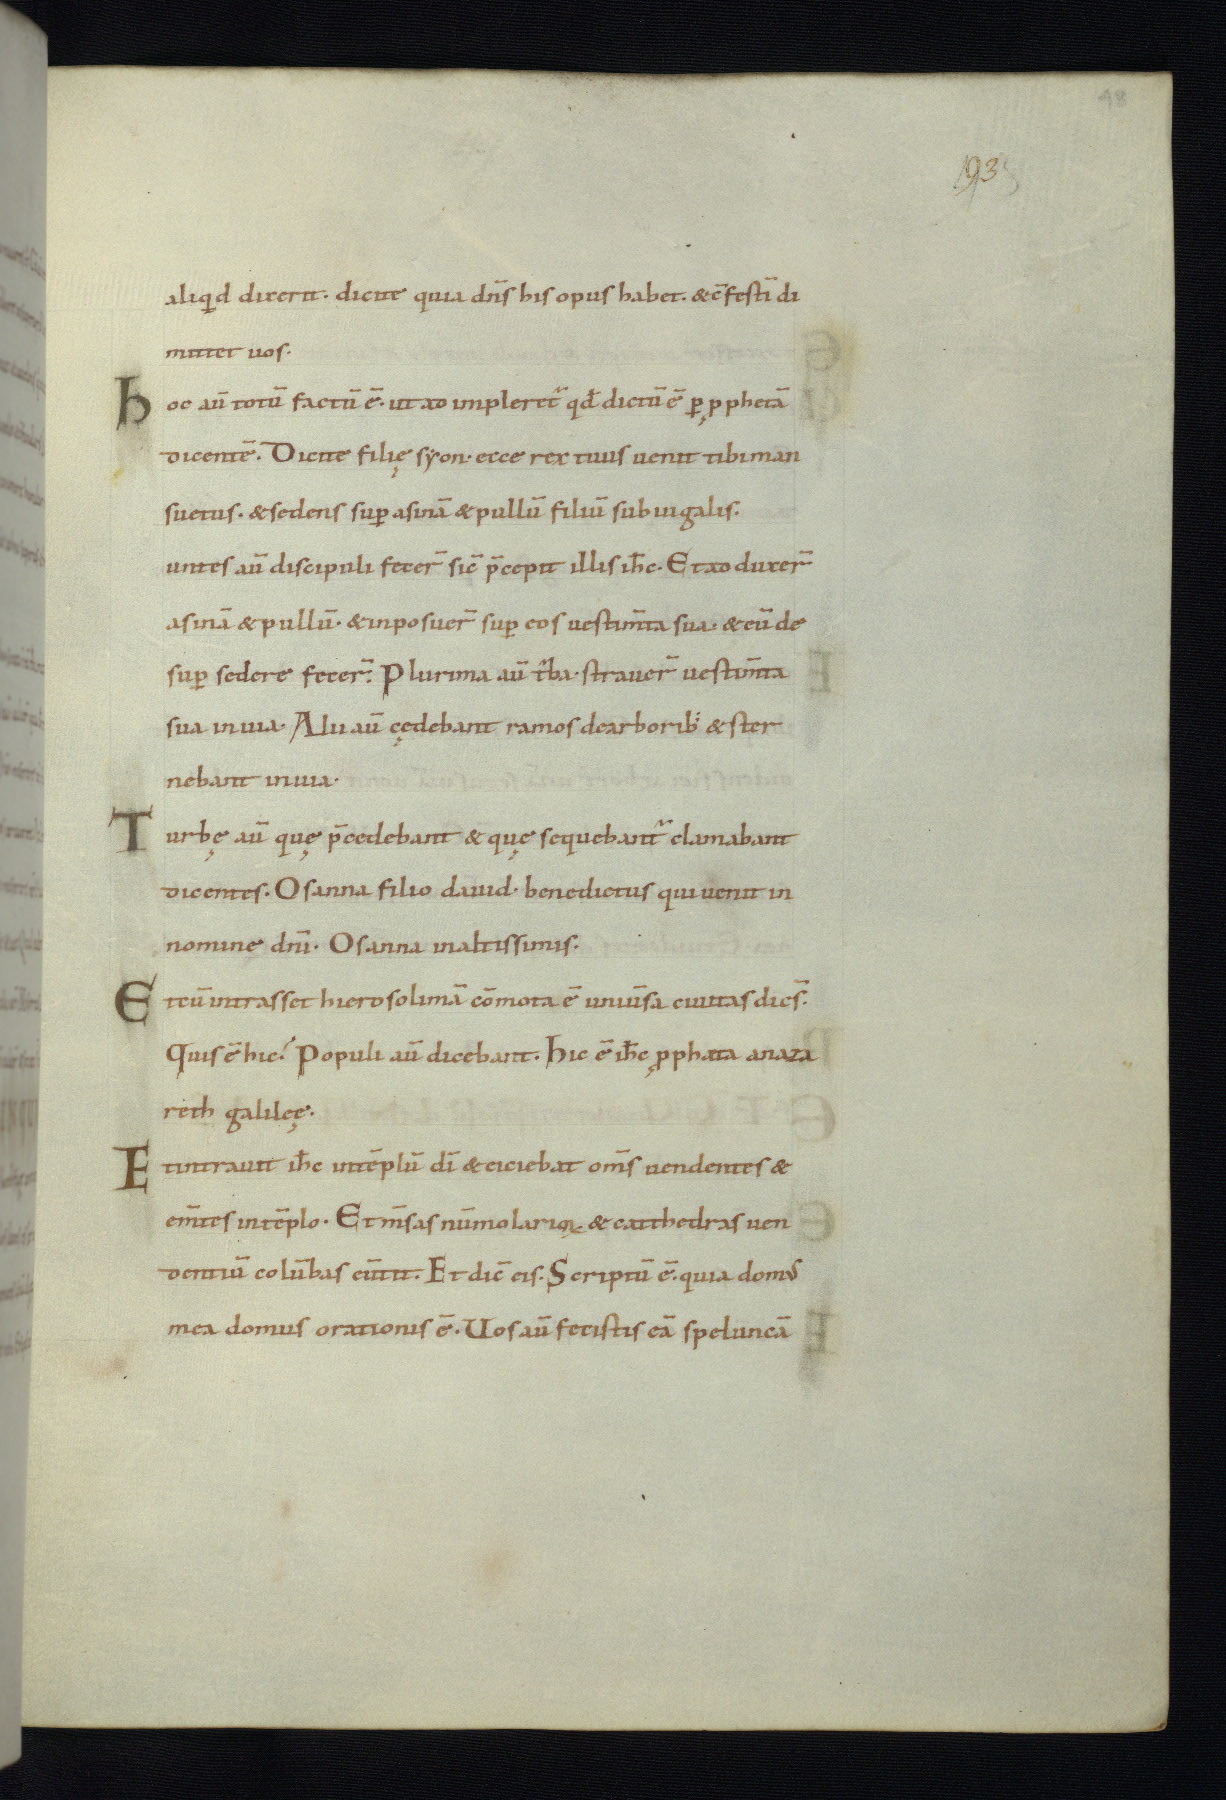 48
193
aliqͥd dixerit. dicite quia dn̄s his opus habet. & cōfestī di
mittet uos.
hoc aū totū factū ē. ut adimpleret᷑ qđ dictū ē ꝑ ꝓphetā
dicentē. Dicite filię syon. ecce rex tuus uenit tibi man
suetus. & sedens suꝑ asinā & pullū filiū subiugalis.
untes aū discipuli fecer̄ sic̄ p̄cepit illis ih̄c. Et adduxer̄
asinā & pullū. & inposuer̄ suꝑ eos uestim̄ta sua. & eū de
suꝑ sedere fecer̄. Plurima aū t̄ba. strauer̄ uestim̄ta
sua in uia. Alii aū cędebant ramos de arborib; & ster
nebant in uia.
Turbę aū quę p̄cedebant & quę sequebant᷑ clamabant
dicentes. Osanna filio dauid. benedictus qui uenit in
nomine dn̄i. Osanna in altissimis.
Et cū intrasset hierosolimā cōmota ē uniūsa ciuitas dicēs.
Quis ē hic? Populi aū dicebant. hic ē ih̄c ꝓphata a naza
reth galileę.
Et intrauit ih̄c in tēplū dī & eiciebat om̄s uendentes &
em̄tes in tēplo. Et m̄sas nūmulariоꝝ & cathedras uen
dentiū colūbas eūtit. Et dic̄ eis. Scriptū ē. quia domus
mea domus orationis ē. Uos aū fecistis eā speluncā